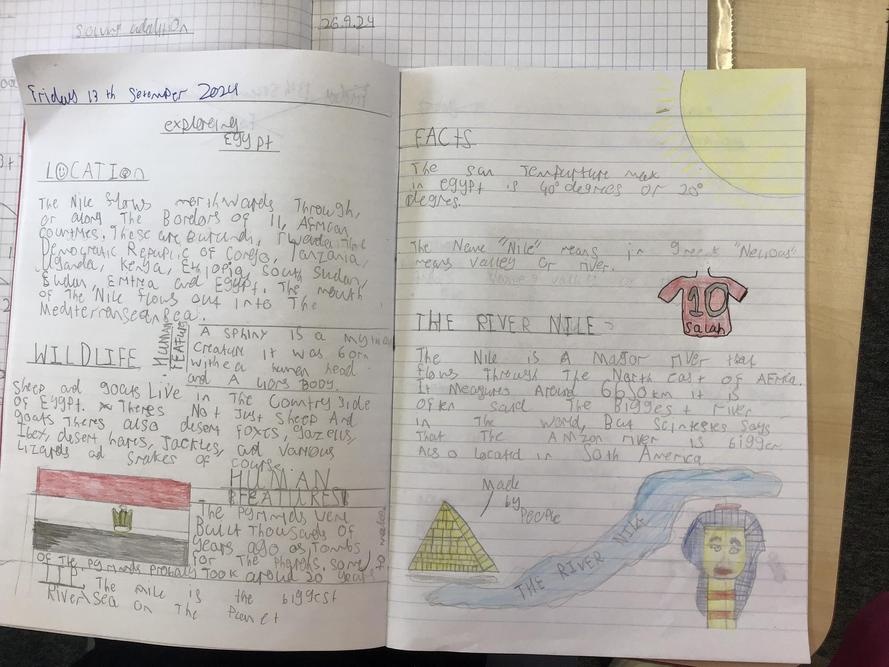 26.9.24
Friday 13th September 2024
exploring
Egypt
LOCATION
The Nile flows northwards Through,
or along The Bordors of 11, African
countries. These are Burundi, rwanda The
Democratic Republic of Congo, Tanzania,
Uganda, Kenya, Ethiopia, South Sudan,
Sudan, Eritrea and Egypt. The mouth
of The Nile flows out into The
Mediterranean Sea.
WILDLIFE
Sheep and goats Live in The Country Side
of Egypt. Theres Not Just Sheep And
goats Theres also desert Foxes, gazells,
Ibex, desert hares, Jackles, and Various
Lizards ad snakes of course
HUMAN
FEATURE
A sphinx is a
Creature it was born
with a human head
and A lions BODY.
HUMAN
FEATURES
The pyramids were
Built Thousands of
years ago as Tombs
for The Pharohs, some
of The pyramids probally Took around 20 years
to make
The nile is the biggest
River/sea on The Planet
FACTS
The
in egypt is 40° degrees or 20°
degrees.
The Name "Nile" means in greek
means valley or river.
10
Salah
THE RIVER NILE
The Nile is A Major river that
flows Through The North east of Africa.
It Measures Around 6650km it is
often said The Biggest river
in The World, But Scintests says
That The AMzon river is bigger
Also Located in South America
Made
by
People
THE RIVER NILE